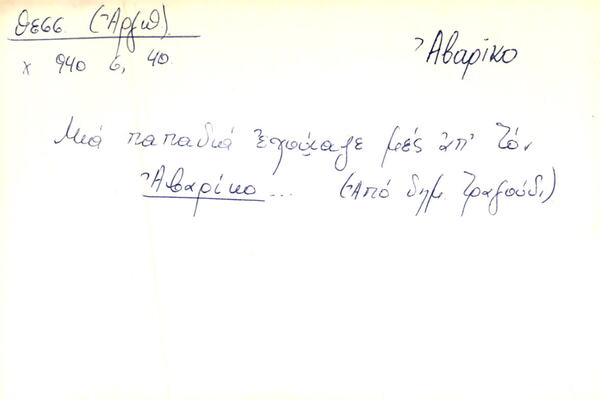 Θεσσ. (Ἀργιθ).
χ 940 6, 40.
Ἀβαρίκο
Μιά παπαδιά ἐχούιαζε μές ἀπ' τόν
Ἀβαρίκο ... (Ἀπό δημ. τραγούδι)